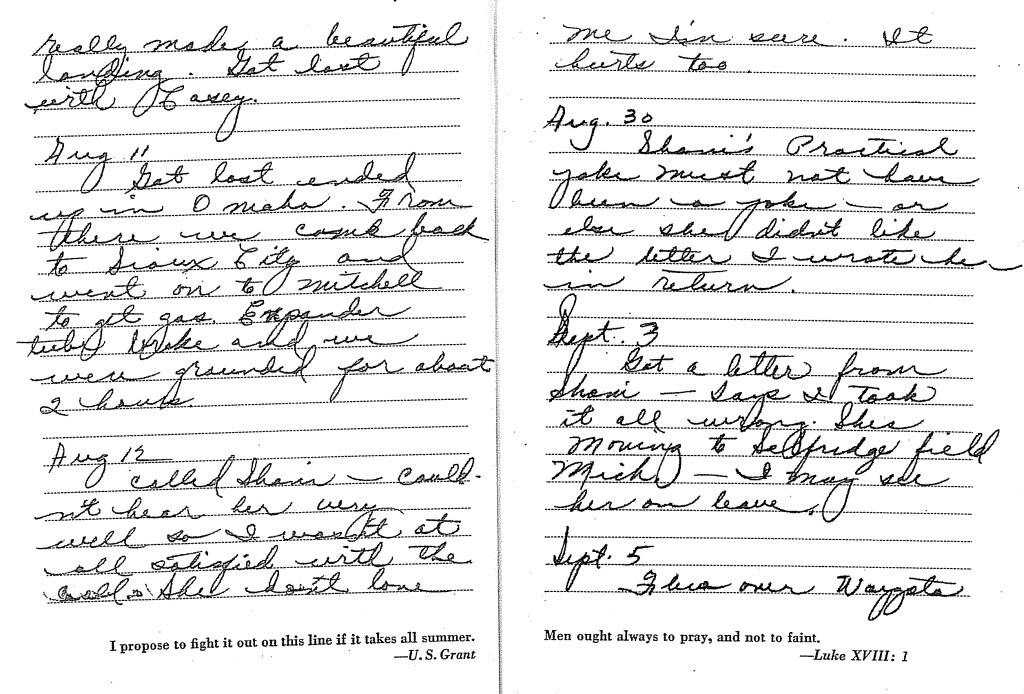 really made a beautiful
landing. Got lost
with Casey.
Aug 11
Got lost ended
up in Omaha. From
there we came back
to Sioux City and
went on to Mitchell
to get gas. Expander
tube broke and we
were grounded for about
2 hours.
Aug 12
Called Shani – could-
n't hear her very
well so I wasn't at
all satisfied with the
call. She don't love
I propose to fight it out on this line if it takes all summer.
—U. S. Grant
me I'm sure. It
hurts too.
Aug. 30
Shani's Practical
joke must not have
been a joke – or
else she didn't like
the letter I wrote her
in return.
Sept. 3
Got a letter from
Shani – Says I took
it all wrong. Shes
Moving to Selfridge field
Mich – I may see
her on leave.
Sept. 5
Flew over Wayzata
Men ought always to pray, and not to faint.
—Luke XVIII: 1